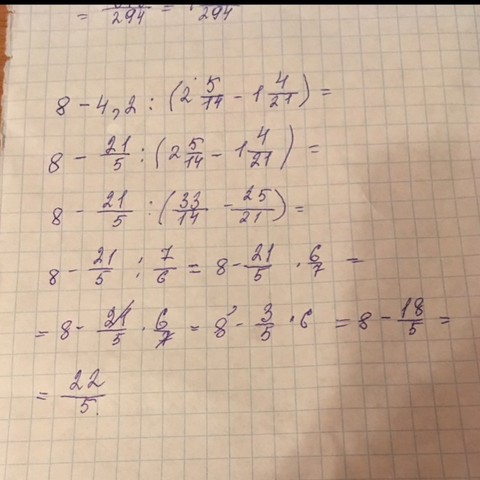 = /294 = /294
8 - 4,2 : (2 5/14 - 1 4/21) =
8 - 21/5 : (2 5/14 - 1 4/21) =
8 - 21/5 : (33/14 - 25/21) =
8 - 21/5 : 7/6 = 8 - 21/5 · 6/7 =
= 8 - 21/5 · 6/7 = 8 - 3/5 · 6 = 8 - 18/5 =
= 22/5.